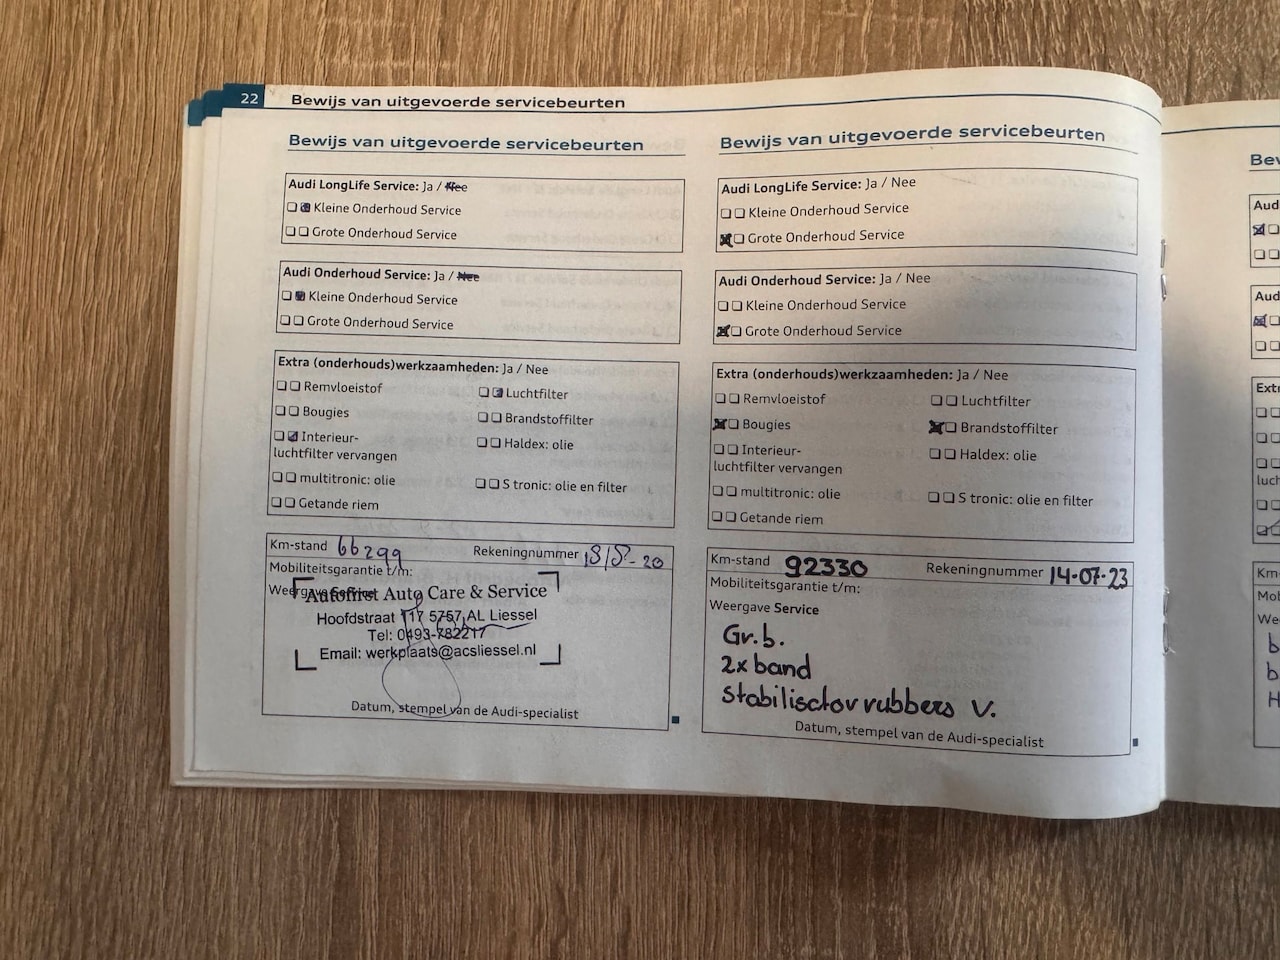 22 Bewijs van uitgevoerde servicebeurten
Bewijs van uitgevoerde servicebeurten
Audi LongLife Service: Ja / Nee
Kleine Onderhoud Service
Grote Onderhoud Service
Audi Onderhoud Service: Ja / Nee
Kleine Onderhoud Service
Grote Onderhoud Service
Extra (onderhouds)werkzaamheden: Ja / Nee
Remvloeistof Luchtfilter
Bougies Brandstoffilter
Interieur- Haldex: olie
luchtfilter vervangen
multitronic: olie S tronic: olie en filter
Getande riem
Km-stand 66299 Rekeningnummer 18/5-20
Mobiliteitsgarantie t/m:
Weergave Service
Autofirst Auto Care & Service
Hoofdstraat 117 5757 AL Liessel
Tel: 0493-782217
Email: werkplaats@acsliessel.nl
Datum, stempel van de Audi-specialist
Bewijs van uitgevoerde servicebeurten
Audi LongLife Service: Ja / Nee
Kleine Onderhoud Service
Grote Onderhoud Service
Audi Onderhoud Service: Ja / Nee
Kleine Onderhoud Service
Grote Onderhoud Service
Extra (onderhouds)werkzaamheden: Ja / Nee
Remvloeistof Luchtfilter
Bougies Brandstoffilter
Interieur- Haldex: olie
luchtfilter vervangen
multitronic: olie S tronic: olie en filter
Getande riem
Km-stand 92330 Rekeningnummer 14-07-23
Mobiliteitsgarantie t/m:
Weergave Service
Gr. b.
2x band
Stabilisator rubbers V.
Datum, stempel van de Audi-specialist
Bew
Aud
Aud
Extr
luch
Km-
Mob
We
b
b
H